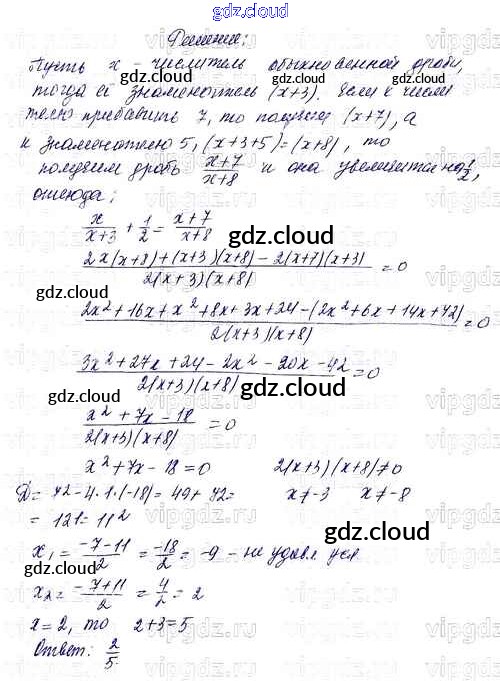 gdz.cloud
Решение:
gdz.cloud
Пусть x - числитель обыкновенной дроби,
тогда её знаменатель (x+3). Если к числи
телю прибавить 7, то получим (x+7), а
к знаменателю 5, (x+3+5)=(x+8), то
получаем дробь x+7/x+8 и она увеличится на 1/2,
отсюда;
x/x+3 + 1/2 = x+7/x+8
gdz.cloud
2x(x+8)+(x+3)(x+8)-2(x+7)(x+3)/2(x+3)(x+8) = 0
gdz.cloud
2x²+16x+x²+8x+3x+24-(2x²+6x+14x+42)/2(x+3)(x+8) = 0
3x²+27x+24-2x²-20x-42/2(x+3)(x+8) = 0
gdz.cloud
x²+7x-18/2(x+3)(x+8) = 0
x²+7x-18=0 2(x+3)(x+8)≠0
Д= 7²-4·1·(-18)= 49+72= x≠-3 x≠-8
= 121= 11²
gdz.cloud
x₁= -7-11/2 = -18/2 = -9 - не удовл усл
gdz.cloud
x₂= -7+11/2 = 4/2 = 2
x=2, то 2+3=5
gdz.cloud
Ответ: 2/5.